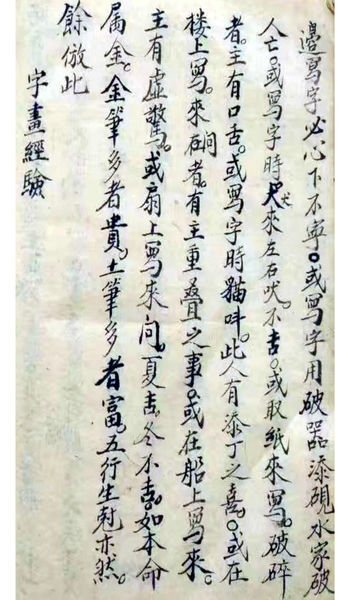 邊寫字必心下不寧。或寫字用破器添硯水家破
人亡。或寫字時犬來左右吠。不吉。或取紙來寫。破碎
者。主有口舌。或寫字時貓叫。此人有添丁之喜。或在
楼上寫。來問者。有主重疊之事。或在船上寫來。
主有虛驚。或扇上寫來問。夏吉。冬不吉。如本命
属金。金筆多者貴。土筆多者富。五行生尅亦然。
餘倣此
字畫經驗